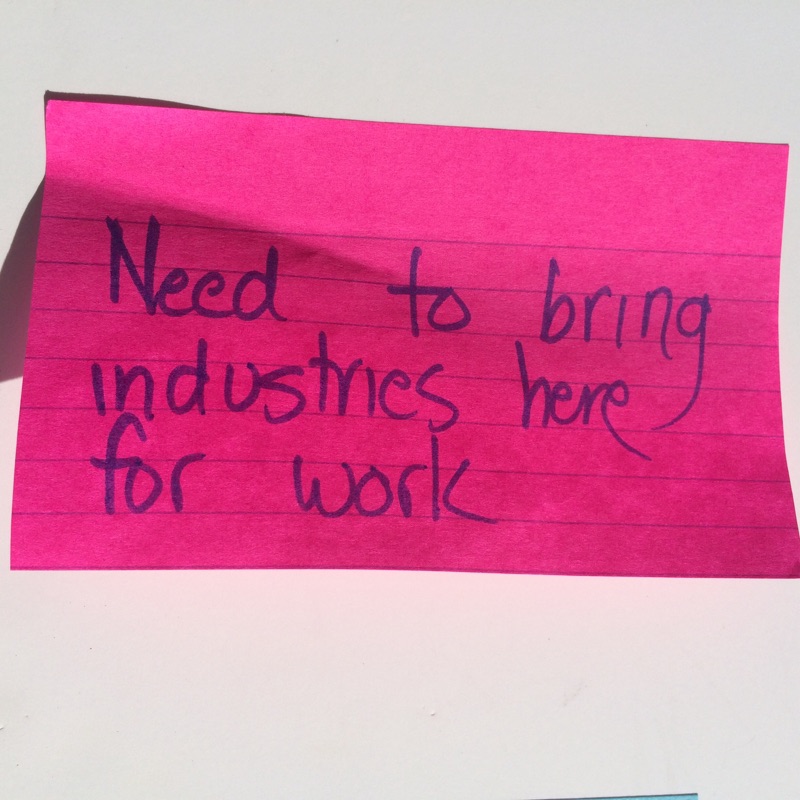 Need to bring
industries here
for work